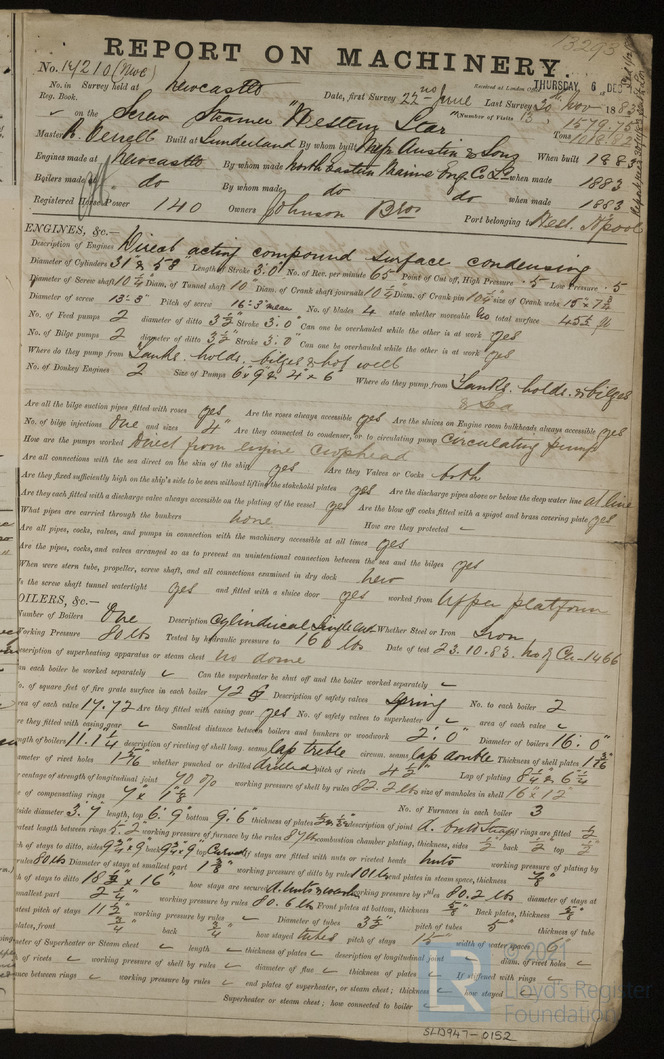 13293
REPORT ON MACHINERY.
No. 14210 (Newc)
Received at London Office THURSDAY 6 DEC
No. in Survey held at Newcastle Date, first Survey 22nd June Last Survey 30th Nov 1883
Reg. Book. (Number of Visits 13)
on the Screw Steamer "Western Star Tons 1579.75
Master R. Verrell Built at Sunderland By whom built Messrs Austin & Sons When built 1883
Engines made at Newcastle By whom made North Eastern Marine Eng. Co. Ld when made 1883
Boilers made at do By whom made do do when made 1883
Registered Horse Power 140 Owners Johnson Bros Port belonging to West H'pool
ENGINES, &c.—
Description of Engines Direct acting compound surface condensing
Diameter of Cylinders 31" & 58" Length of Stroke 3'.0" No. of Rev. per minute 65 Point of Cut off, High Pressure .5 Low Pressure .5
Diameter of Screw shaft 10 1/4" Diam. of Tunnel shaft 10" Diam. of Crank shaft journals 10 1/4" Diam. of Crank pin 10 1/4" size of Crank webs
Diameter of screw 13'-8" Pitch of screw 16'-3" mean No. of blades 4 state whether moveable no total surface
No. of Feed pumps 2 diameter of ditto 3 1/2" Stroke 3'.0" Can one be overhauled while the other is at work yes
No. of Bilge pumps 2 diameter of ditto 3 1/2" Stroke 3'.0 Can one be overhauled while the other is at work yes
Where do they pump from Tanks. holds. bilges & hot well
No. of Donkey Engines 2 Size of Pumps 6" x 9" & 4" x 6" Where do they pump from Tanks. holds. & bilges
& Sea
Are all the bilge suction pipes fitted with roses yes Are the roses always accessible yes Are the sluices on Engine room bulkheads always accessible yes
No. of bilge injections One and sizes 4" Are they connected to condenser, or to circulating pump Circulating pump
How are the pumps worked Direct from engine crosshead
Are all connections with the sea direct on the skin of the ship yes Are they Valves or Cocks both
Are they fixed sufficiently high on the ship's side to be seen without lifting the stokehold plates yes Are the discharge pipes above or below the deep water line at line
Are they each fitted with a discharge valve always accessible on the plating of the vessel yes Are the blow off cocks fitted with a spigot and brass covering plate yes
What pipes are carried through the bunkers none How are they protected -
Are all pipes, cocks, valves, and pumps in connection with the machinery accessible at all times yes
Are the pipes, cocks, and valves arranged so as to prevent an unintentional connection between the sea and the bilges yes
When were stern tube, propeller, screw shaft, and all connections examined in dry dock new
Is the screw shaft tunnel watertight yes and fitted with a sluice door yes worked from Upper platform
OILERS, &c.—
Number of Boilers One Description Cylindrical Single end Whether Steel or Iron Iron
Working Pressure 80 lbs Tested by hydraulic pressure to 160 lbs Date of test 23.10.83. No of Cer 1466
escription of superheating apparatus or steam chest no dome
an each boiler be worked separately Can the superheater be shut off and the boiler worked separately
o. of square feet of fire grate surface in each boiler 72 Description of safety valves Spring No. to each boiler 2
rea of each valve 17.72 Are they fitted with easing gear yes No. of safety valves to superheater area of each valve
re they fitted with easing gear Smallest distance between boilers and bunkers or woodwork 2'.0" Diameter of boilers 16'.0"
ngth of boilers description of riveting of shell long. seams lap treble circum. seams lap double Thickness of shell plates
ameter of rivet holes 1 5/16" whether punched or drilled drilled pitch of rivets 4 1/2" Lap of plating 8 1/4 & 6 1/4
centage of strength of longitudinal joint 70 % working pressure of shell by rules 82.2 lb size of manholes in shell 16" x 12"
e of compensating rings No. of Furnaces in each boiler 3
tside diameter 3'.7" length, top 6'.9" bottom 9'.6" thickness of plates description of joint rings are fitted
eatest length between rings working pressure of furnace by the rules 87 lbs combustion chamber plating, thickness, sides 1/2" back 1/2" top 1/2"
ch of stays to ditto, sides 9 3/4 x 9" back 9 3/4 x 9" top Curved If stays are fitted with nuts or riveted heads nuts working pressure of plating by
rules 80 lbs Diameter of stays at smallest part 1 3/8" working pressure of ditto by rules 101 lbs end plates in steam space, thickness 7/8"
ch of stays to ditto 18 1/2 x 16" how stays are secured working pressure by rules 80.2 lbs diameter of stays at
smallest part 2 1/4" working pressure by rules 80.6 lbs Front plates at bottom, thickness 5/8" Back plates, thickness 5/8"
atest pitch of stays 11 1/2" working pressure by rules Diameter of tubes 3 1/2" pitch of tubes 5" thickness of tube
plates, front 3/4" back 3/4" how stayed tubes pitch of stays width of water spaces
ameter of Superheater or Steam chest length thickness of plates description of longitudinal joint diam. of rivet holes
h of rivets working pressure of shell by rules diameter of flue thickness of plates If stiffened with rings
ance between rings working pressure by rules end plates of superheater, or steam chest; thickness how stayed
Superheater or steam chest; how connected to boiler
© 2021
Lloyd's Register
Foundation
SLD947-0152